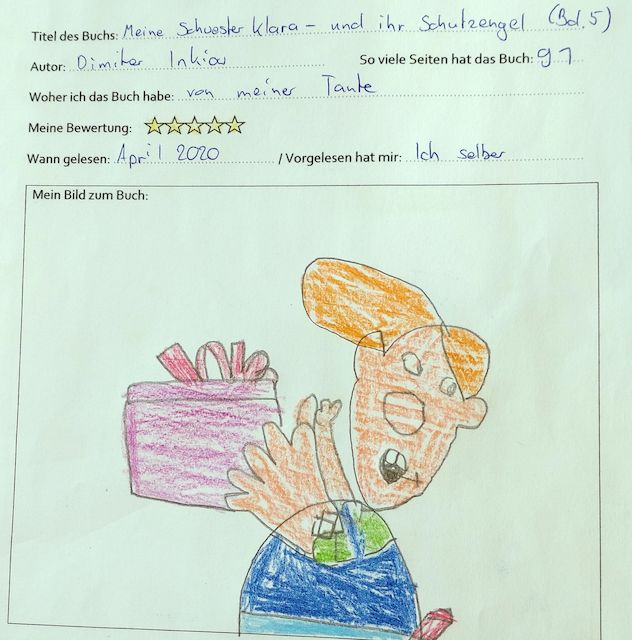 Titel des Buchs: Meine Schwester Klara - und ihr Schutzengel (Bd. 5)
Autor: Dimiter Inkiow So viele Seiten hat das Buch: 91
Woher ich das Buch habe: von meiner Tante
Meine Bewertung:
Wann gelesen: April 2020 / Vorgelesen hat mir: Ich selber
Mein Bild zum Buch: